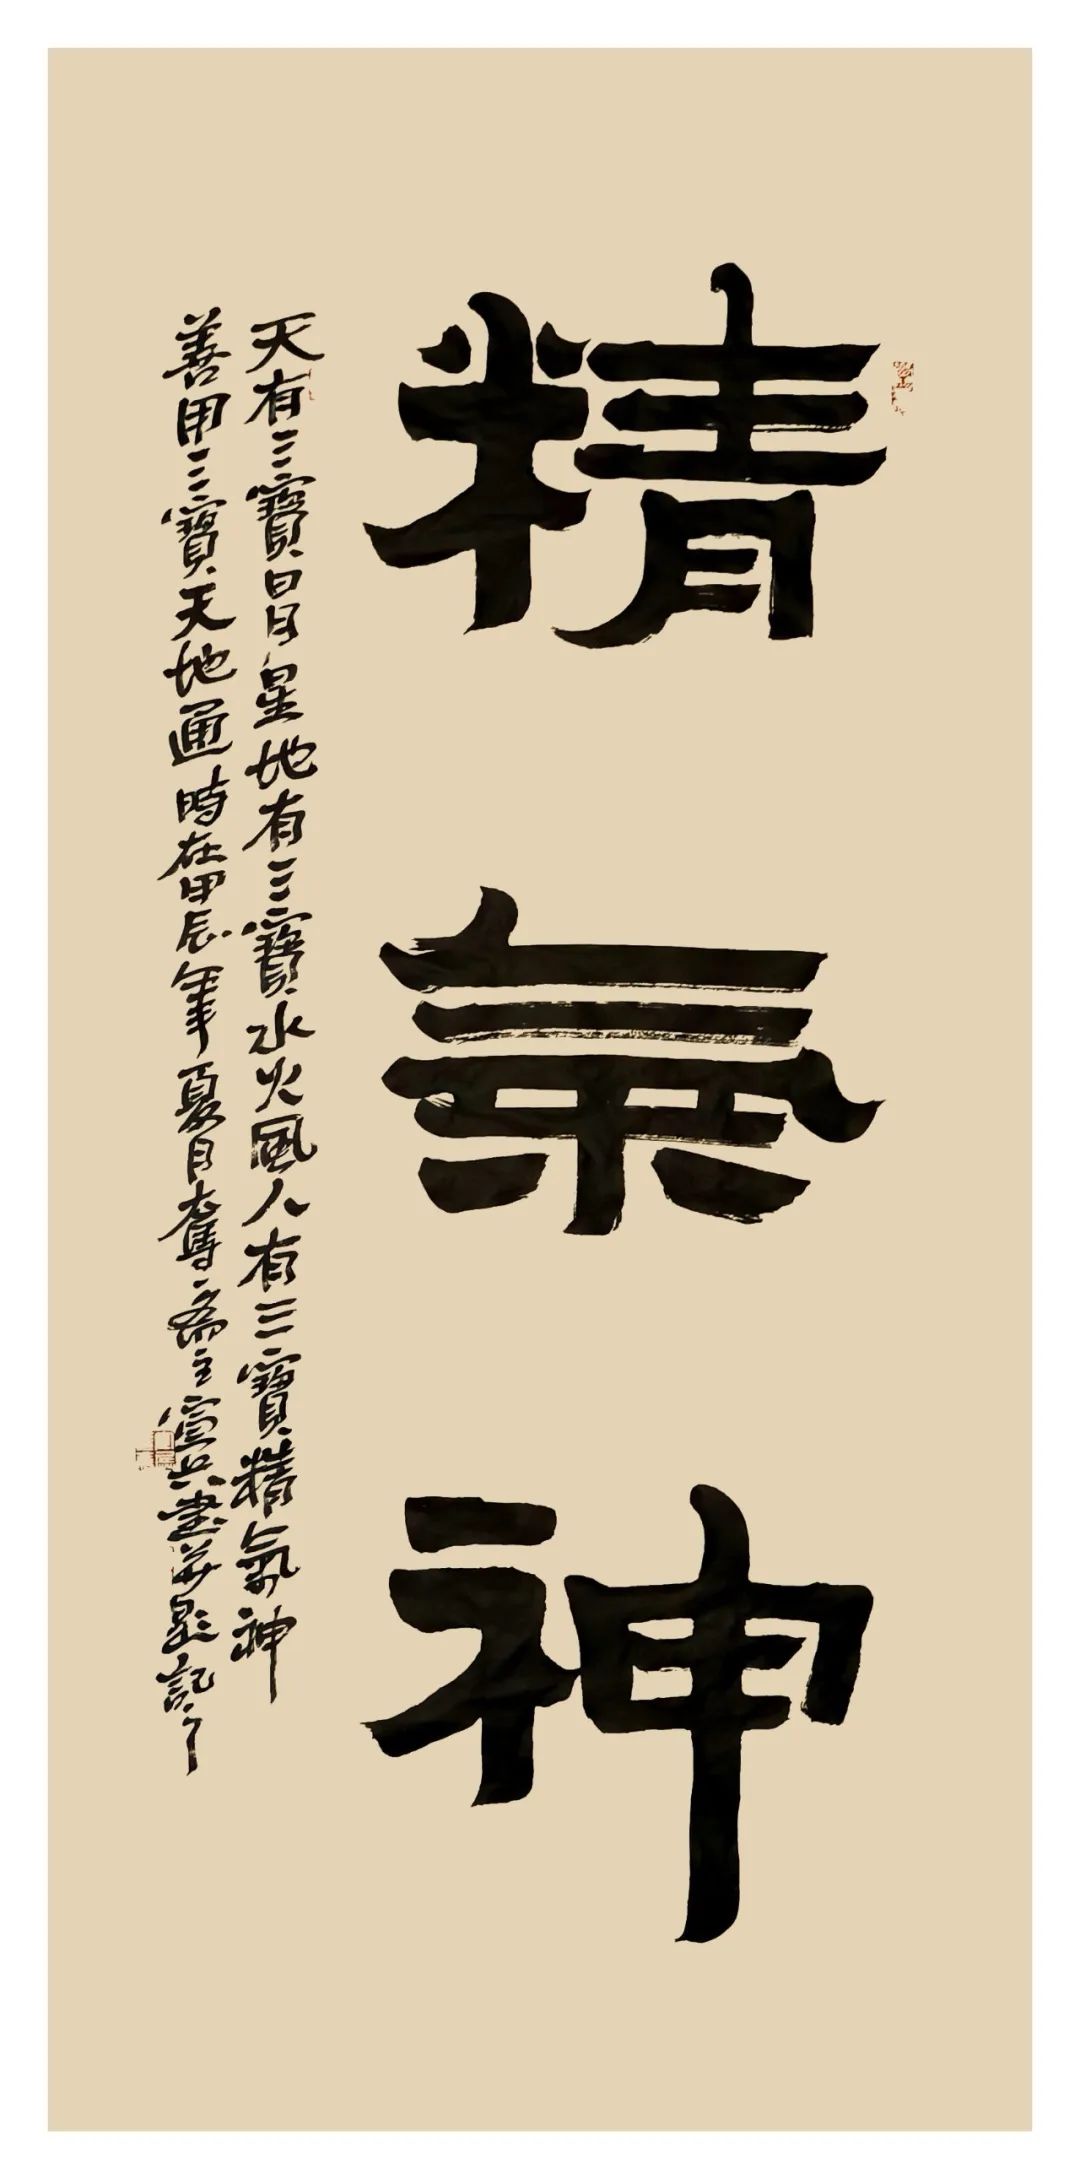 精氣神
天有三寶日月星地有三寶水火風人有三寶精氣神
善用三寶天地通時在甲辰年夏月奮齋主宣兵書並題記之